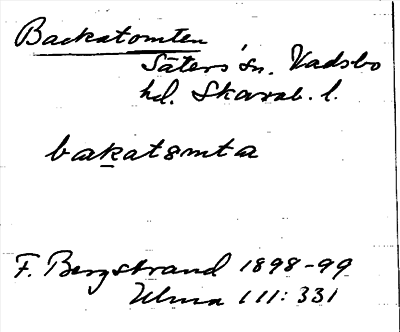 Backatomten
Säters sn. Vadsbo
hd. Skarab. l.
bakat8mta
F. Bergstrand 1898-99
Ulma 111:331